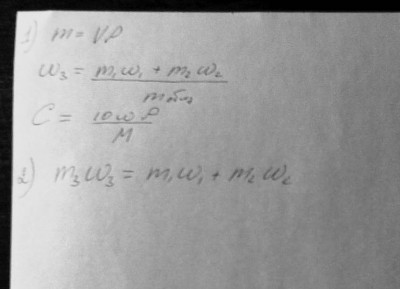 1) m = Vρ
ω₃ = (m₁ω₁ + m₂ω₂) / mобщ
C = 10ωρ / M
2) m₃ω₃ = m₁ω₁ + m₂ω₂